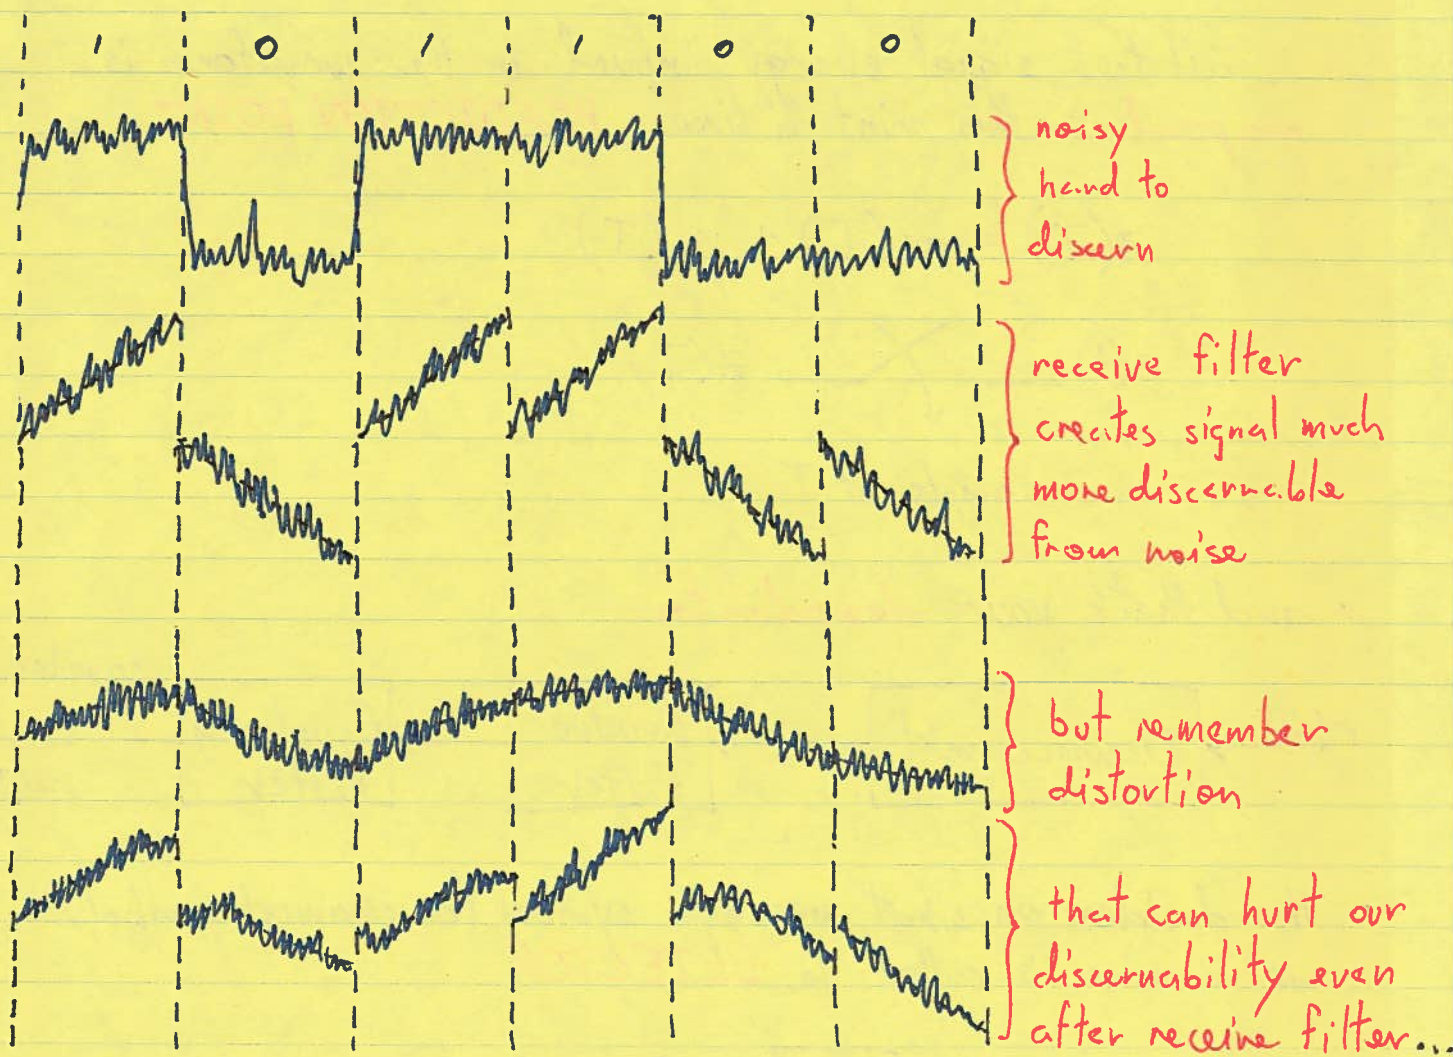 1 0 1 1 0 0
noisy
hard to
discern
receive filter
creates signal much
more discernable
from noise
but remember
distortion
that can hurt our
discernability even
after receive filter...